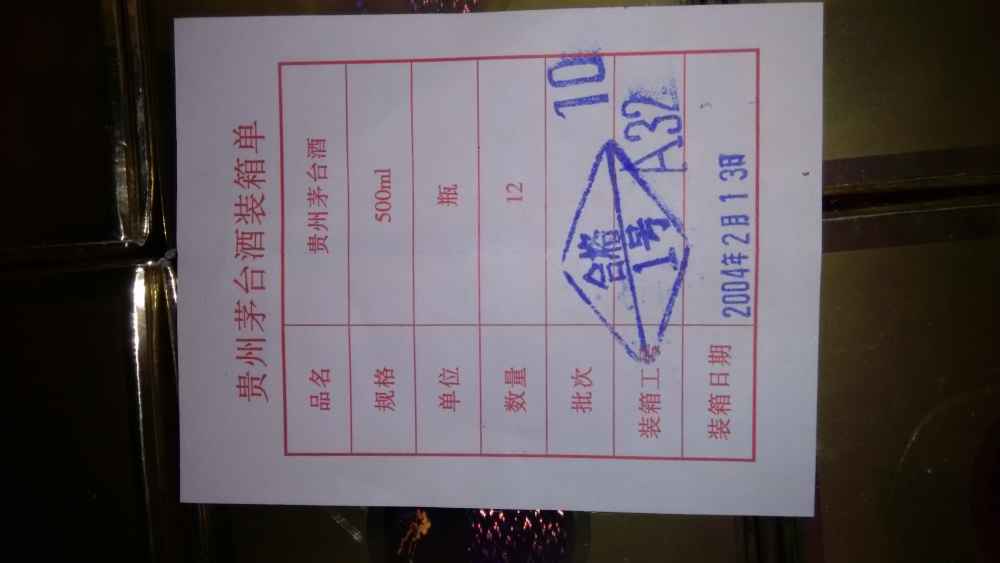 贵州茅台酒装箱单
品名 贵州茅台酒
规格 500ml
单位 瓶
数量 12
批次 10
装箱工号 A32
装箱日期 2004年2月13日
合格
1号